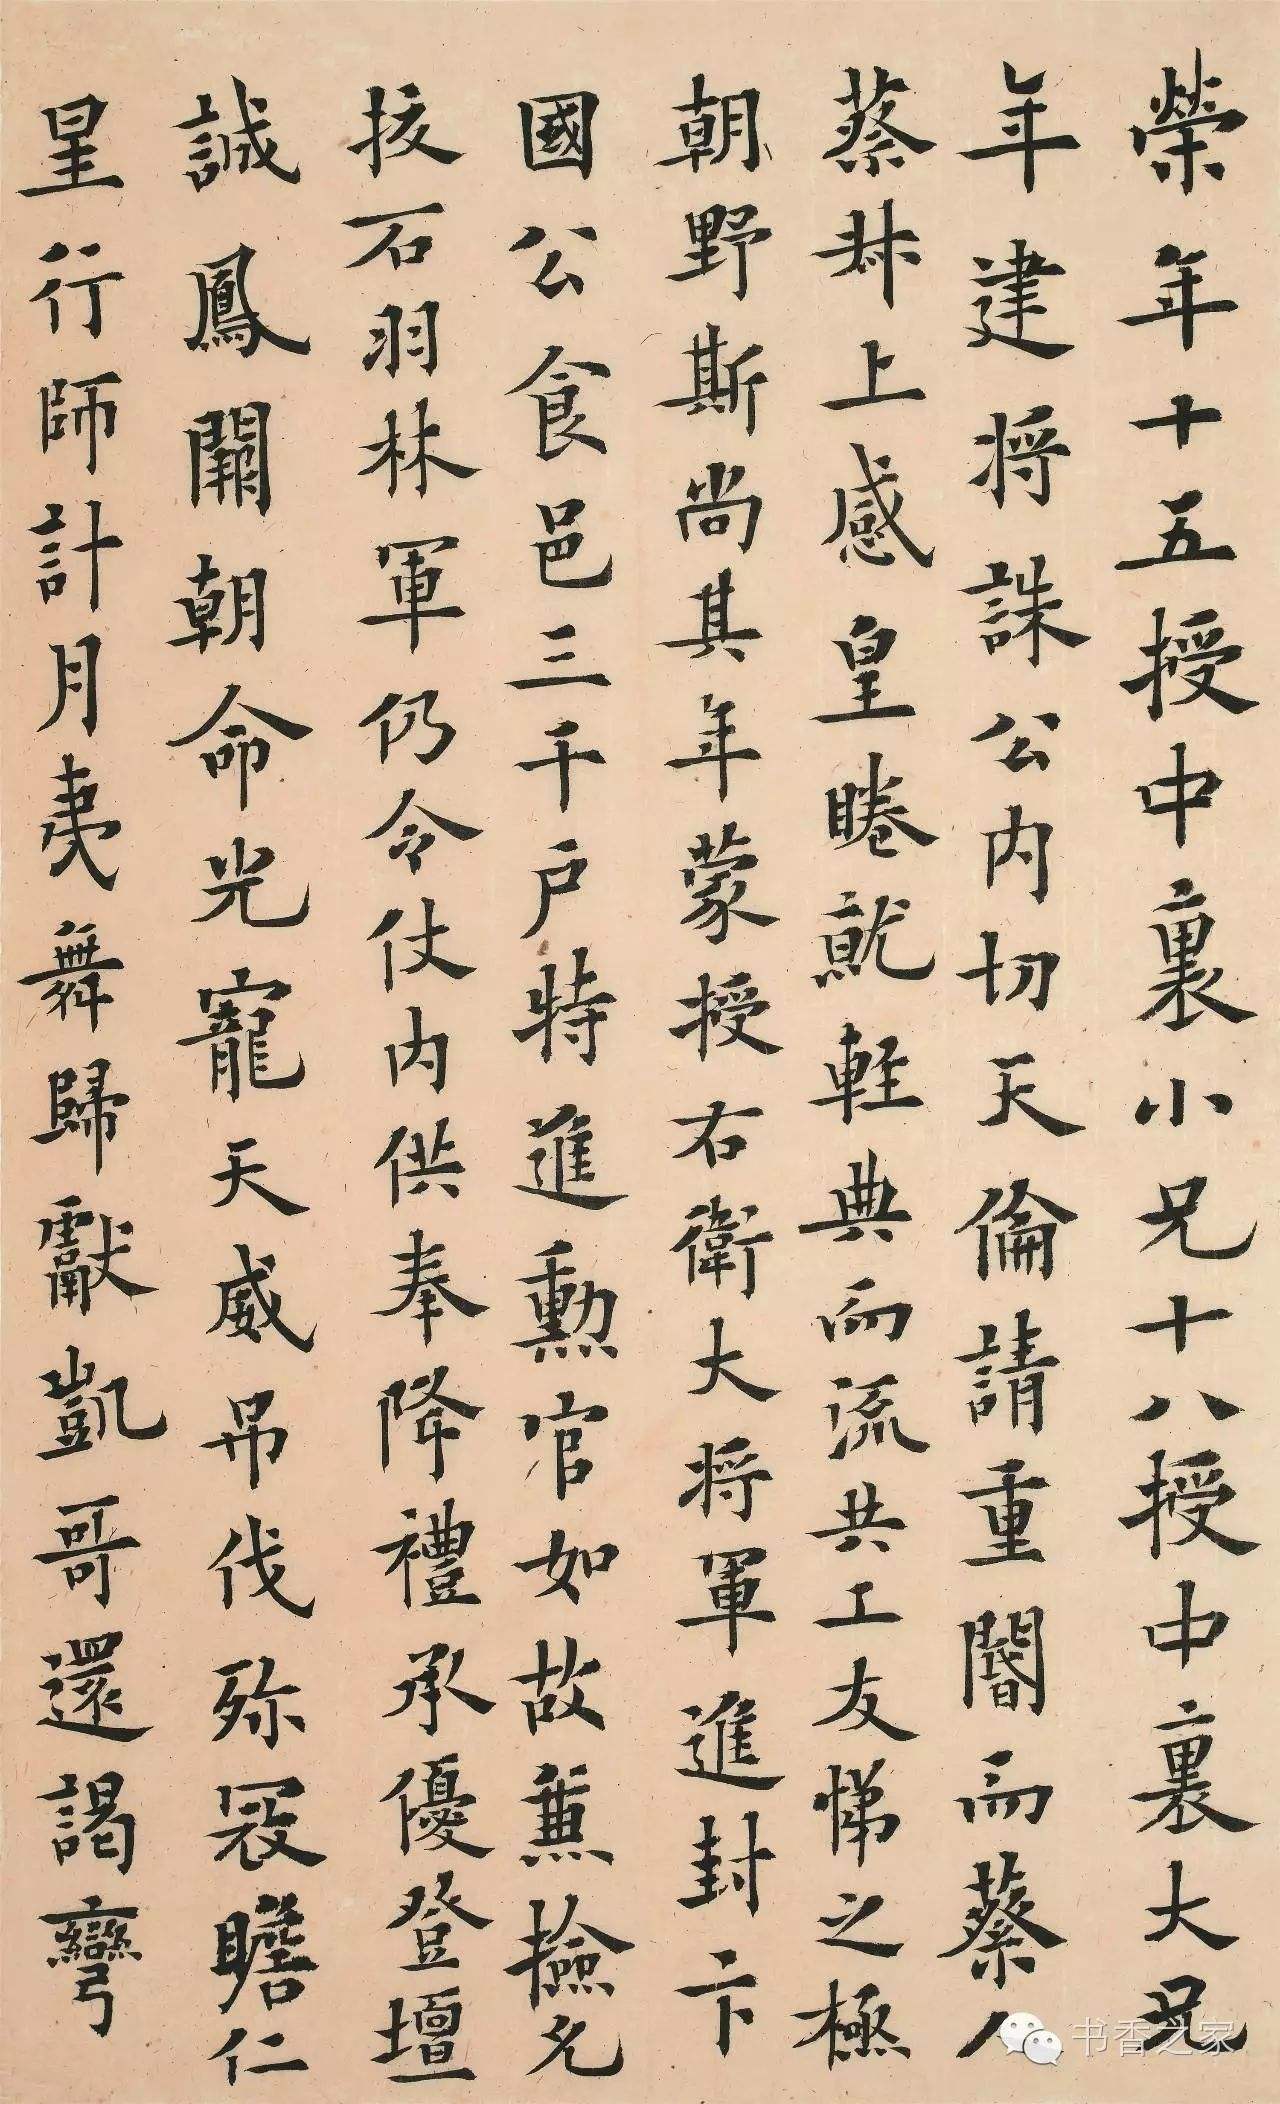 榮年十五授中裏小兄十八授中裏大兄
年建將誅公内切天倫請重闇而蔡
蔡叔上感皇睠就輕典而流共工友悌之極
朝野斯尚其年蒙授右衛大將軍進封卞
國公食邑三千戶特進勳官如故兼撿
挍石羽林軍仍令仗内供奉降禮承優登壇
誠鳳闈朝命光寵天威吊伐殄寇瞻仁
星行師計月夷舞歸獻凱哥還謁彎
书香之家